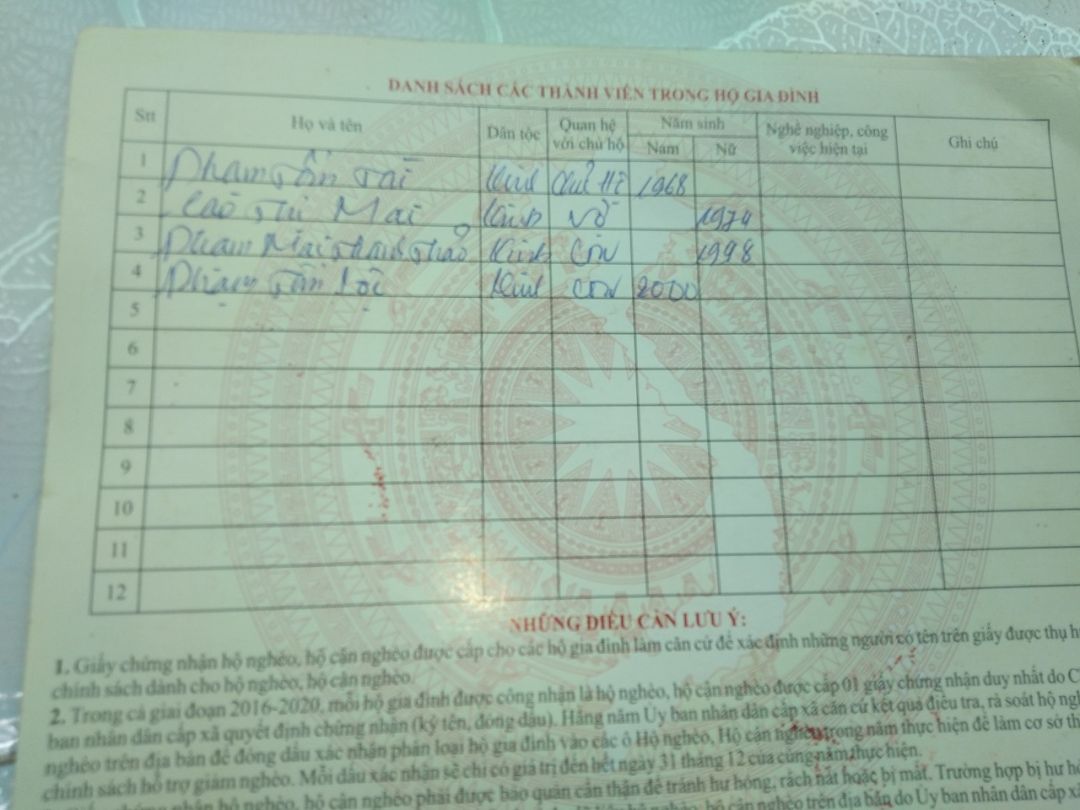 DANH SÁCH CÁC THÀNH VIÊN TRONG HỘ GIA ĐÌNH
Stt Họ và tên Dân tộc Quan hệ với chủ hộ Năm sinh Nam Nữ Nghề nghiệp, công việc hiện tại Ghi chú
1 Phạm Tấn Tài Kinh Chủ Hộ 1968
2 Cao Thị Mai Kinh Vợ 1974
3 Phạm Mai Thanh Thảo Kinh Con 1998
4 Phạm Tấn Lộc Kinh Con 2000
5
6
7
8
9
10
11
12
NHỮNG ĐIỀU CẦN LƯU Ý:
1. Giấy chứng nhận hộ nghèo, hộ cận nghèo được cấp cho các hộ gia đình làm căn cứ để xác định những người có tên trên giấy được thụ
chính sách dành cho hộ nghèo, hộ cận nghèo.
2. Trong cả giai đoạn 2016-2020, mỗi hộ gia đình được công nhận là hộ nghèo, hộ cận nghèo được cấp 01 giấy chứng nhận duy nhất do
ban nhân dân cấp xã quyết định chứng nhận (ký tên, đóng dấu). Hằng năm Ủy ban nhân dân cấp xã căn cứ kết quả điều tra, rà soát hộ
nghèo trên địa bàn để đóng dấu xác nhận phân loại hộ gia đình vào các ô Hộ nghèo, Hộ cận nghèo trong năm thực hiện để làm cơ sở
chính sách hỗ trợ giảm nghèo. Mỗi dấu xác nhận sẽ chỉ có giá trị đến hết ngày 31 tháng 12 của cùng năm thực hiện.
chứng nhận hộ nghèo, hộ cận nghèo phải được bảo quản cẩn thận để tránh hư hỏng, rách nát hoặc bị mất. Trường hợp bị hư
hộ cận nghèo trên địa bàn do Ủy ban nhân dân cấp xã